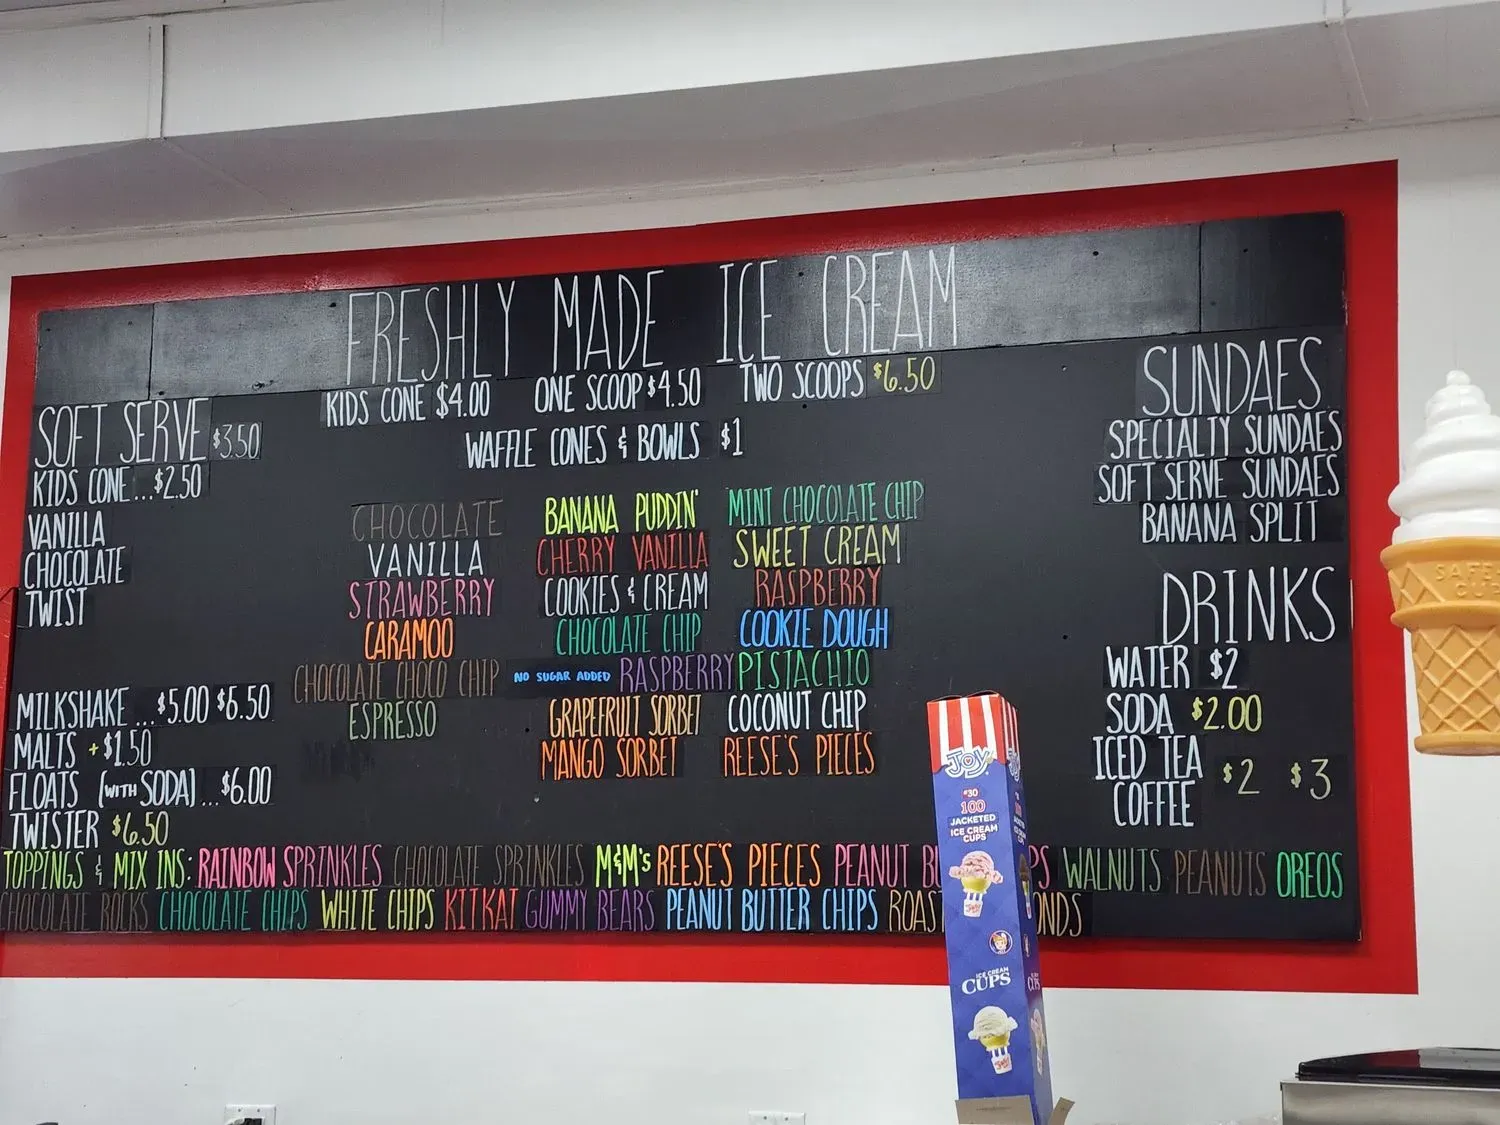 FRESHLY MADE ICE CREAM
KIDS CONE $4.00 ONE SCOOP $4.50 TWO SCOOPS $6.50
WAFFLE CONES & BOWLS $1
SOFT SERVE $3.50
KIDS CONE...$2.50
VANILLA
CHOCOLATE
TWIST
MILKSHAKE ...$5.00 $6.50
MALTS +$1.50
FLOATS (WITH SODA)...$6.00
TWISTER $6.50
CHOCOLATE
VANILLA
STRAWBERRY
CARAMOO
CHOCOLATE CHOCO CHIP
ESPRESSO
BANANA PUDDIN'
CHERRY VANILLA
COOKIES & CREAM
CHOCOLATE CHIP
NO SUGAR ADDED RASPBERRY
GRAPEFRUIT SORBET
MANGO SORBET
MINT CHOCOLATE CHIP
SWEET CREAM
RASPBERRY
COOKIE DOUGH
PISTACHIO
COCONUT CHIP
REESE'S PIECES
SUNDAES
SPECIALTY SUNDAES
SOFT SERVE SUNDAES
BANANA SPLIT
DRINKS
WATER $2
SODA $2.00
ICED TEA
COFFEE
$2 $3
TOPPINGS & MIX INS: RAINBOW SPRINKLES CHOCOLATE SPRINKLES M&M's REESE'S PIECES PEANUT WALNUTS PEANUTS OREOS
CHOCOLATE ROCKS CHOCOLATE CHIPS WHITE CHIPS KITKAT GUMMY BEARS PEANUT BUTTER CHIPS
JOY
#30
100
JACKETED
ICE CREAM
CUPS
ICE CREAM
CUPS